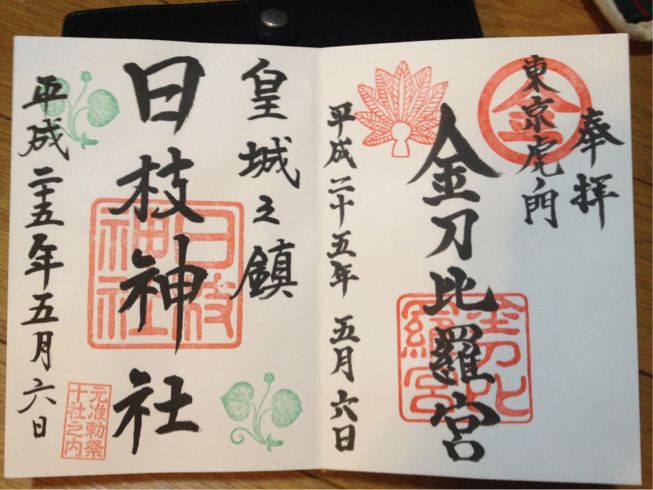 奉拝
東京虎ノ門
金
金刀比羅宮
金刀比羅宮
平成二十五年 五月六日
皇城之鎮
日枝神社
日枝神社
元准勅祭
十社之内
平成二十五年五月六日